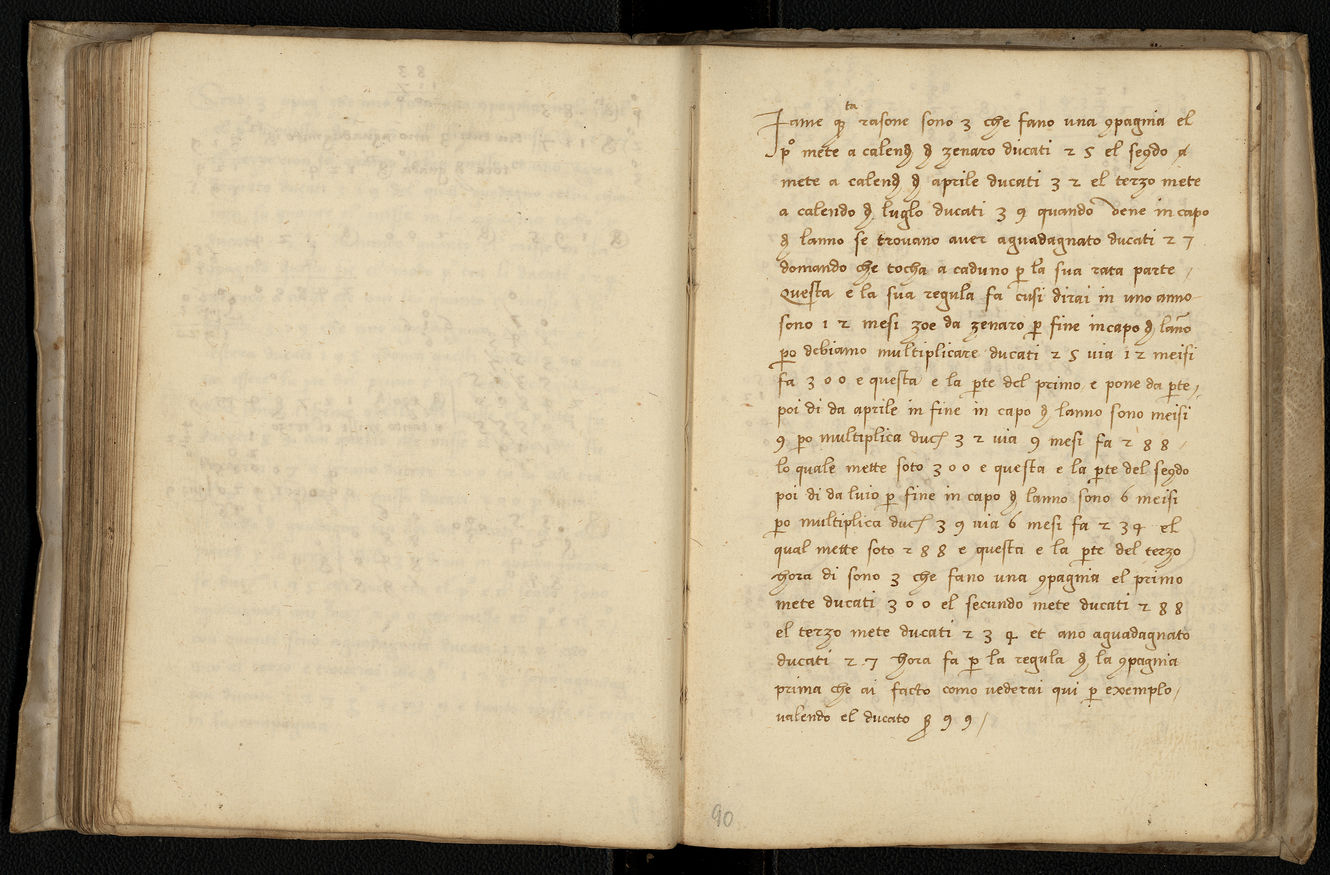 Fame q̃ta rasone sono 3 che fano una ꝯpagnia el
p° mete a calenꝺ ꝺ zenaro ducati 25 el segdo
mete a calenꝺ ꝺ aprile ducati 32 el terzo mete
a calendo ꝺ luglo ducati 39 quando vene in capo
ꝺ lanno se trouano auer aguadagnato ducati 27
domando che tocha a caduno ꝑ la sua rata parte /
Questa e la sua regula fa cusi dirai in uno anno
sono 12 mesi zoe da zenaro ꝑ fine incapo ꝺ lãno
ꝑo debiamo multiplicare ducati 25 uia 12 meisi
fa 300 e questa e la ꝑte del primo e pone da ꝑte /
poi di da aprile in fine in capo ꝺ lanno sono meisi
9 ꝑo multiplica duc 32 uia 9 mesi fa 288 /
lo quale mette soto 300 e questa e la ꝑte del seꝯdo
poi di da luio ꝑ fine in capo ꝺ lanno sono 6 meisi
ꝑo multiplica duc 39 uia 6 mesi fa 234 el
qual mette soto 288 e questa e la ꝑte del terzo
hora di sono 3 che fano una ꝯpagnia el primo
mete ducati 300 el secundo mete ducati 288
el terzo mete ducati 234 et ano aguadagnato
ducati 27 hora fa ꝑ la regula ꝺ la ꝯpagnia
prima che ai facto como uederai qui ꝑ exemplo /
ualendo el ducato 99 /
90